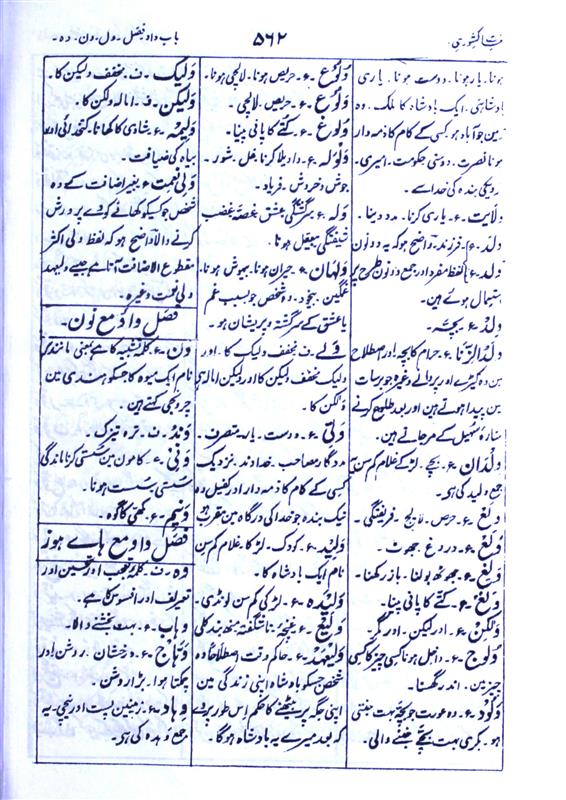 لغات کشوری
۵۶۲
باب واو فصل ۔ ول ۔ ون ۔ وہ ۔
ہونا۔ یار ہونا۔ دوست ہونا۔ یاری
بادشاہی۔ ایک بادشاہ کا ملک۔ وہ
زمین جو آباد ہو کسی کے کام کا ذمہ دار
ہونا نصرت۔ دوستی حکومت۔ امیری۔
نزدیکی بندہ کی خدا سے۔
وِلایَت۔ ع۔ یاری کرنا۔ مدد دینا۔
وَلَد۔ فرزند۔ واضح ہو کہ یہ دونون
وُلد۔ ع لفظ مفرد اور جمع دونون طرح پر
استعمال ہوئے ہین۔
وِلْد۔ ع۔ بچہ۔
وَلَدُ الزِّنا۔ حرام کا بچہ اور اصطلاح
مین وہ کیڑے اور پروانے وغیرہ جو برسات
مین پیدا ہوتے ہین اور بعد طلوع کرنے
ستارہ سہیل کے مر جاتے ہین۔
وِلْدان۔ ع۔ بچے۔ لڑکے غلام کم سن۔
جمع ولید کی ہو۔
وَلَع۔ ع۔ حرص۔ لالچ۔ فریفتگی۔
وَلْع۔ ع۔ دروغ۔ جھوٹ۔
وَلْع۔ ع۔ جھوٹھ بولنا۔ باز رکھنا۔
وَلْغ۔ ع۔ کتے کا پانی پینا۔
وَلٰکِن۔ ع۔ اور لیکن۔ اور مگر۔
وُلُوج۔ ع۔ داخل ہونا کسی چیز کا کسی
چیز مین۔ اندر گھسنا۔
وَلُود۔ ع۔ وہ عورت جو بچے بہت جنتی
ہو۔ بکری بہت بچے جننے والی۔
وُلُوع۔ ع۔ حریص ہونا۔ لالچی ہونا۔
وَلُوع۔ ع۔ حریص۔ لالچی۔
وُلُوغ۔ ع۔ کتے کا پانی پینا۔
وَلْوَلہ۔ ع۔ واویلا کرنا۔ غل۔ شور۔
جوش و خروش۔ فریاد۔
وَلَہ۔ ع۔ سرگشتگی عشق غصہ غضب
شیفتگی بیعقل ہونا۔
وَلْہان۔ ع۔ حیران ہونا۔ بیہوش ہونا۔
غمگین۔ بیخود۔ وہ شخص جو بسبب غم
یا عشق کے سرگشتہ و پریشان ہو۔
وَلے۔ ف۔ مخفف ولیک کا۔ اور
ولیک مخفف ولیکن کا اور لیکن امالہ ہی
ولٰکن کا۔
وَلی۔ ع۔ دوست۔ یار۔ متصرف۔
مددگار۔ مصاحب۔ خداوند۔ نزدیک
کسی کے کام کا ذمہ دار اور کفیل۔ وہ
نیک بندہ جو خدا کی درگاہ مین مقرب ہو
وَلید۔ ع۔ کودک۔ لڑکا۔ غلام کم سن
نام ایک بادشاہ کا۔
وَلیدہ۔ ع۔ لڑکی کم سن لونڈی۔
وَلیع۔ ع۔ غنچہ۔ ناشگفتہ منہ بند کلی
وَلیعَہْد۔ ع۔ حاکم وقت اصطلاحًا وہ
شخص جسکو بادشاہ اپنی زندگی مین
اپنی جگہ پر بیٹھنے کا حکم اس طور پر دے
کہ بعد میرے یہ بادشاہ ہوگا۔
وَلیک۔ ف۔ مخفف ولیکن کا۔
وَلیکن۔ ف۔ امالہ ولکن کا۔
وَلیمہ۔ ع۔ شادی کا کھانا۔ کتخدائی اور
بیاہ کی ضیافت۔
وَلی نِعْمَت۔ ع۔ بغیر اضافت کے وہ
شخص جو کسیکو کھانے کو دے پرورش
کرنے والا واضح ہو کہ لفظ ولی اکثر
مقطوع الاضافت آتا ہے جیسے ولیعہد
ولی نعمت وغیرہ۔
فصل واو مع نون۔
وَن۔ ع۔ کلمہ تشبیہ کا ہے بمعنی مانند کے
نام ایک میوہ کا جسکو ہندی مین
چرونجی کہتے ہین۔
وَند۔ ف۔ ترہ تیزک۔
وَنیٰ۔ ع۔ کامون مین سستی کرنا ماندگی
سستی۔ سست ہونا۔
وَنیم۔ ع۔ مکھی کا گوہ۔
فصل واو مع ہاے ہوز
وَہ۔ ف۔ کلمہ تعجب اور تحسین اور
تعریف اور افسوس کا ہے۔
وَہاب۔ ع۔ بہت بخشنے والا۔
وَہّاج۔ ع۔ درخشان۔ روشن اور
چمکتا ہوا۔ بڑا روشن۔
وِہاد۔ ع۔ زمینین پست اور نیچی۔ یہ
جمع وہدہ کی ہو۔